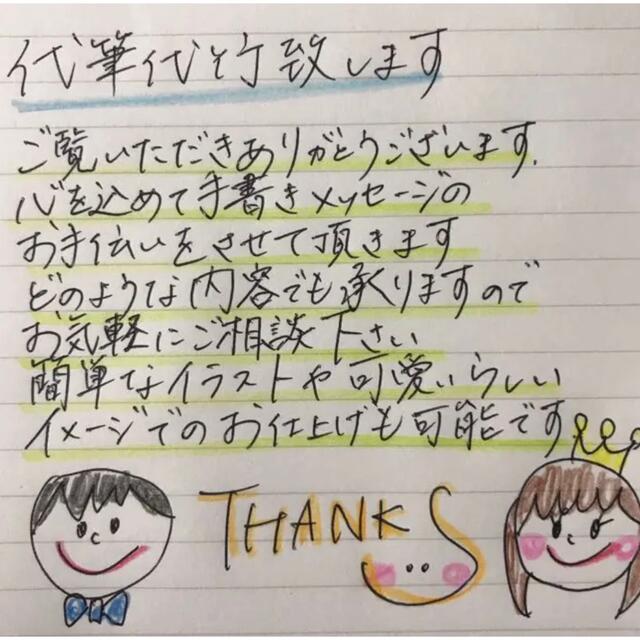 代筆代行致します
ご覧いただきありがとうございます.
心を込めて手書きメッセージの
お手伝いをさせて頂きます
どのような内容でも承りますので
お気軽にご相談下さい
簡単なイラストや可愛いらしい
イメージでのお仕上げも可能です
THANKS